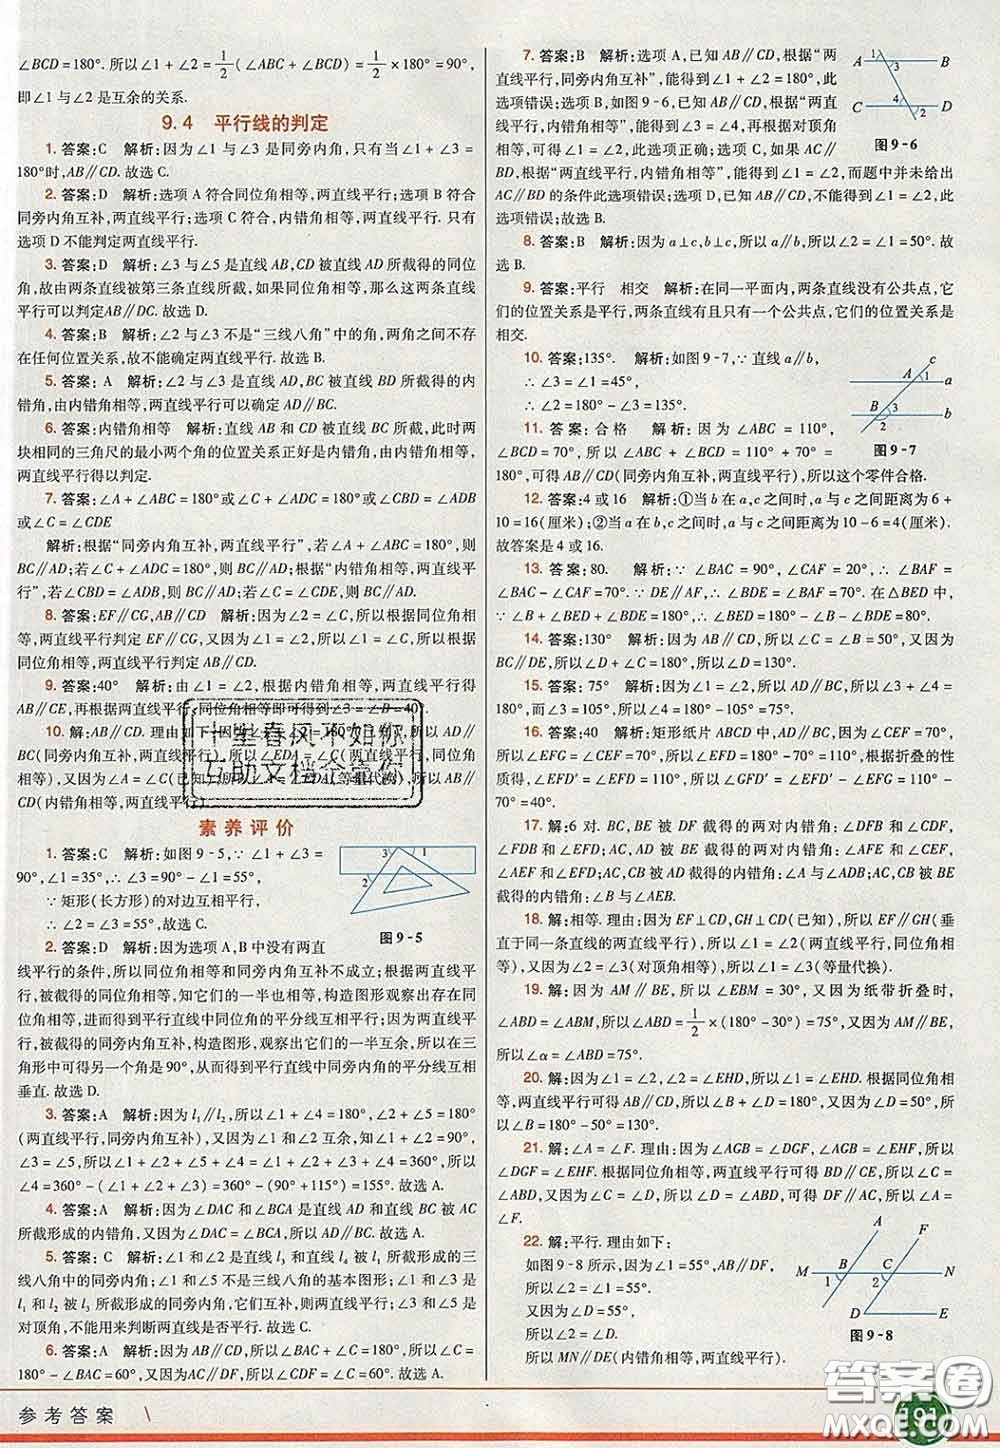 ∠BCD=180°. 所以∠1+∠2=1/2(∠ABC+∠BCD)=1/2×180°=90°,
即∠1与∠2是互余的关系.
9.4 平行线的判定
1. 答案:C 解析:因为∠1与∠3是同旁内角,只有当∠1+∠3=
180°时,AB∥CD. 故选C.
2. 答案:D 解析:选项A符合同位角相等,两直线平行;选项B符合
同旁内角互补,两直线平行;选项C符合,内错角相等,两直线平行. 只有
选项D不能判定两直线平行.
3. 答案:D 解析:∠3与∠5是直线AB,CD被直线AD所截得的同位
角,故由两条直线被第三条直线所截,如果同位角相等,那么这两条直线
平行可以判定AB∥DC. 故选D.
4. 答案:B 解析:∠2与∠3不是“三线八角”中的角,两角之间不存
在任何位置关系,故不能确定两直线平行. 故选B.
5. 答案:A 解析:∠2与∠3是直线AD,BC被直线BD所截得的内
错角,由内错角相等,两直线平行可以确定AD∥BC.
6. 答案:内错角相等 解析:直线AB和CD被直线BC所截,此时两
块相同的三角尺的最小两个角的位置关系正好是内错角,由内错角相等,
两直线平行得以判定.
7. 答案:∠A+∠ABC=180°或∠C+∠ADC=180°或∠CBD=∠ADB
或∠C=∠CDE
解析:根据“同旁内角互补,两直线平行”,若∠A+∠ABC=180°,则
BC∥AD;若∠C+∠ADC=180°,则BC∥AD;根据“内错角相等,两直线平
行”,若∠CBD=∠ADB,则BC∥AD;若∠C=∠CDE,则BC∥AD.
8. 答案:EF∥CG,AB∥CD 解析:因为∠1=∠2,所以根据同位角相
等,两直线平行判定EF∥CG,又因为∠1=∠A,所以∠A=∠C,所以根据
同位角相等,两直线平行判定AB∥CD.
9. 答案:40° 解析:由∠1=∠2,根据内错角相等,两直线平行得
AB∥CE,再根据两直线平行,同位角相等即可得到∠3=∠B=40°.
10. 解:AB∥CD. 理由如下
BC(同旁内角互补,两直线平行),所以∠EDA
行,同位角相等),又因为∠A=∠C(等量代换),所以AB∥
CD(内错角相等,两直线平行)
十里春风不如你
互助文档涂言你
素养评价
1. 答案:C 解析:如图9-5,∵∠1+∠3=90°,
∠1=35°,∴∠3=90°-∠1=55°.
∵矩形(长方形)的对边互相平行,
∴∠2=∠3=55°,故选C.
图9-5
2. 答案:D 解析:因为选项A,B中没有两直
线平行的条件,所以同位角相等和同旁内角互补不成立;根据两直线平
行,被截得的同位角相等,知它们的一半也相等,构造图形观察出存在同
位角相等,进而得到平行直线中同位角的平分线互相平行;因为两直线平
行,被截得的内错角互补,构造图形,观察出它们的一半之和是90°,所以在三
角形中可得另一个内角是90°,从而得到平行直线中同旁内角的平分线互相
垂直. 故选D.
3. 答案:A 解析:因为l₁∥l₂,所以∠1+∠4=180°,∠2+∠5=180°
(两直线平行,同旁内角互补),又因为∠1和∠2互余,知∠1+∠2=90°,
∠3=∠5,所以∠1+∠2+∠3+∠4=360°-(∠1+∠2)=360°-90°,所以
∠4=360°-(∠1+∠2+∠3)=360°-(90°+115°)=155°. 故选A.
4. 答案:A 解析:∠DAC和∠BCA是直线AD和直线BC被AC
所截形成的内错角,又因为∠DAC=∠BCA,所以AD∥BC. 故选A.
5. 答案:C 解析:∠1和∠2是直线l₃和直线l₄被l₁所截形成的三
线八角中的同旁内角;∠1和∠5不是三线八角的基本图形;∠1和∠3是
l₁和l₂被l₃所截形成的同旁内角,它们互补,则两直线平行;∠3和∠5是
对顶角,不能用来判断两直线是否平行. 故选C.
6. 答案:A 解析:因为AB∥CD,所以∠BAC+∠ACD=180°,所以∠ACD=
180°-∠BAC=180°-120°=60°,又因为AC∥DF,所以∠CDF=∠ACD=60°. 故选A.
7. 答案:B 解析:选项A,已知AB∥CD,根据“两
直线平行,同旁内角互补”,能得到∠1+∠2=180°,此
选项错误;选项B,如图9-6,已知AB∥CD,根据“两直
线平行,内错角相等”,能得到∠3=∠4,再根据对顶角
相等,可得∠1=∠2,此选项正确;选项C,如果AC∥
BD,根据“两直线平行,内错角相等”,能得到∠1=∠2,而题中并未给出
AC∥BD的条件此选项错误;选项D,已知AB∥CD,不能得到∠1=∠2,此
选项错误;故选B.
图9-6
8. 答案:B 解析:因为a⊥c,b⊥c,所以a∥b,所以∠2=∠1=50°. 故
选B.
9. 答案:平行 相交 解析:在同一平面内,两条直线没有公共点,它
们的位置关系是平行,两条直线有且只有一个公共点,它们的位置关系是
相交.
10. 答案:135°. 解析:如图9-7,∵直线a∥b,
∴∠3=∠1=45°,
∴∠2=180°-∠3=135°.
图9-7
11. 答案:合格 解析:因为∠ABC=110°,
∠BCD=70°,所以∠ABC+∠BCD=110°+70°=
180°,可得AB∥CD(同旁内角互补,两直线平行),所以这个零件合格.
12. 答案:4或16 解析:①当b在a,c之间时,a与c之间距离为6+
10=16(厘米);②当a在b,c之间时,a与c之间距离为10-6=4(厘米).
故答案是4或16.
13. 答案:80. 解析:∵∠BAC=90°,∠CAF=20°,∴∠BAF=
∠BAC-∠CAF=70°. ∵DE∥AF,∴∠BDE=∠BAF=70°. 在△BED中,
∵∠B+∠BED+∠BDE=180°,∴∠BED=180°-∠B-∠BDE=80°.
14. 答案:130° 解析:因为AB∥CD,所以∠C=∠B=50°,又因为
BC∥DE,所以∠D+∠C=180°,所以∠D=130°.
15. 答案:75° 解析:因为∠1+∠2=180°,所以a∥b,所以∠3+∠4=
180°,而∠3=105°,所以∠4=180°-105°=75°.
16. 答案:40 解析:矩形纸片ABCD中,AD∥BC,∵∠EFG=70°,
所以∠EFG=∠FEC=70°,所以∠EFD=180°-70°=110°,根据折叠的性
质得,∠EFD'=∠EFD=110°,∴∠GFD'=∠EFD'-∠EFG=110°-
70°=40°.
17. 解:6对. BC,BE被DF截得的两对内错角:∠DFB和∠CDF,
∠FDB和∠EFD;AC,BE被DF截得的两对内错角:∠AFE和∠CEF,
∠AEF和∠DEF;AC,CB被AD截得的内错角:∠CAB和∠ABE;AC,CB被BE
截得的内错角:∠B与∠AEB.
18. 解:相等. 理由:因为EF⊥CD,GH⊥CD(已知),所以EF∥GH(垂
直于同一条直线的两直线平行),所以∠1=∠2(两直线平行,同位角相
等),又因为∠2=∠3(对顶角相等),所以∠1=∠3(等量代换).
19. 解:因为AM∥BE,所以∠EBM=30°,又因为纸带折叠时,
∠ABD=∠ABM,所以∠ABD=1/2×(180°-30°)=75°,又因为AM∥BE,
所以∠α=∠ABD=75°.
20. 解:因为∠1=∠2,∠2=∠EHD,所以∠1=∠EHD. 根据同位角相
等,两直线平行可得AB∥CD,所以∠B+∠D=180°,又因为∠D=50°,所
以∠B=180°-50°=130°.
21. 解:∠A=∠F. 理由:因为∠AGB=∠DGF,∠AGB=∠EHF,所以
∠DGF=∠EHF. 根据同位角相等,两直线平行可得BD∥CE,所以∠C=
∠ABD,又因为∠C=∠D,所以∠ABD=∠D,可得DF∥AC,所以∠A=
∠F.
22. 解:平行. 理由如下:
如图9-8所示,因为∠1=55°,
所以∠ABN=∠1=55°,
因为AB∥DF,所以∠2=∠ABN=55°.
又因为∠D=55°,
所以∠2=∠D,
所以MN∥DE(内错角相等,两直线平行).
图9-8
参考答案
191
答案圈
MXQE.COM